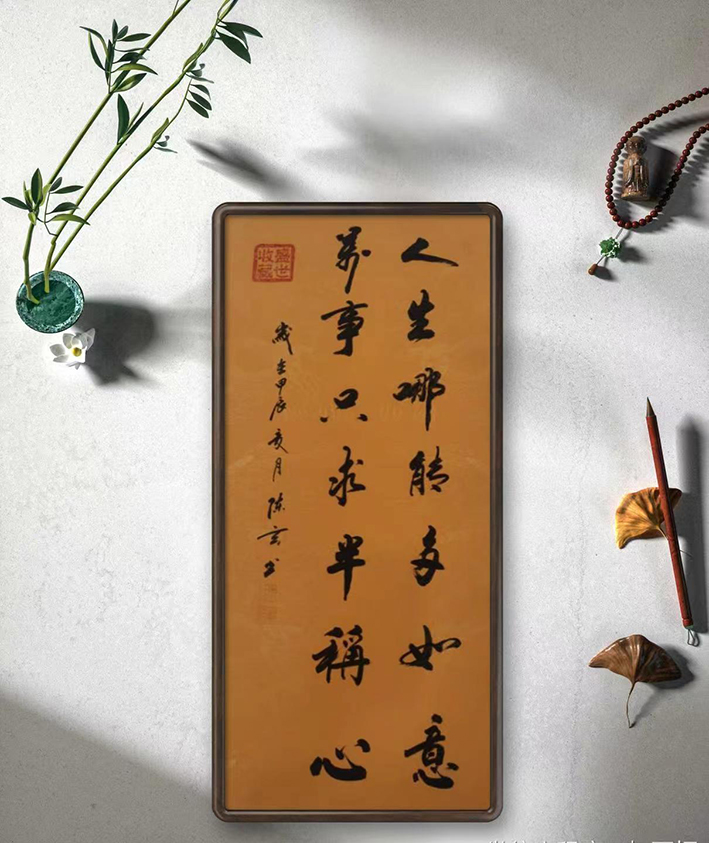 人生哪能多如意
万事只求半稱心
歲在甲辰亥月陈云书
盛世收藏